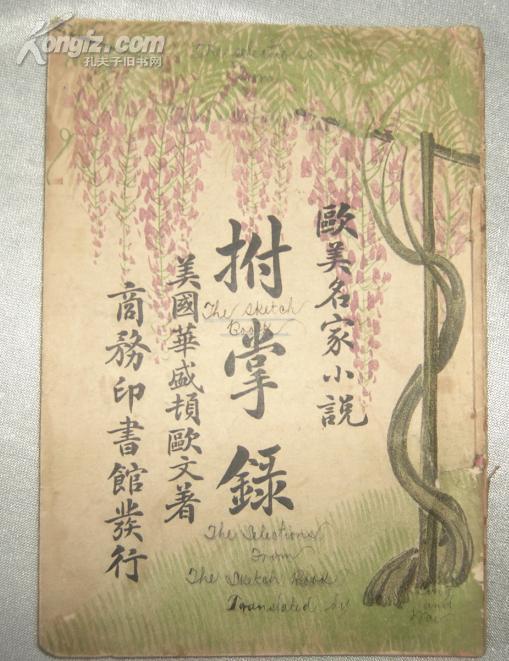 Kongfz.com
孔夫子旧书网
歐美名家小説
拊掌錄
The Sketch
Book
美國華盛頓歐文著
商務印書館發行
The Selections
From
The Sketch Book
Translated by
and